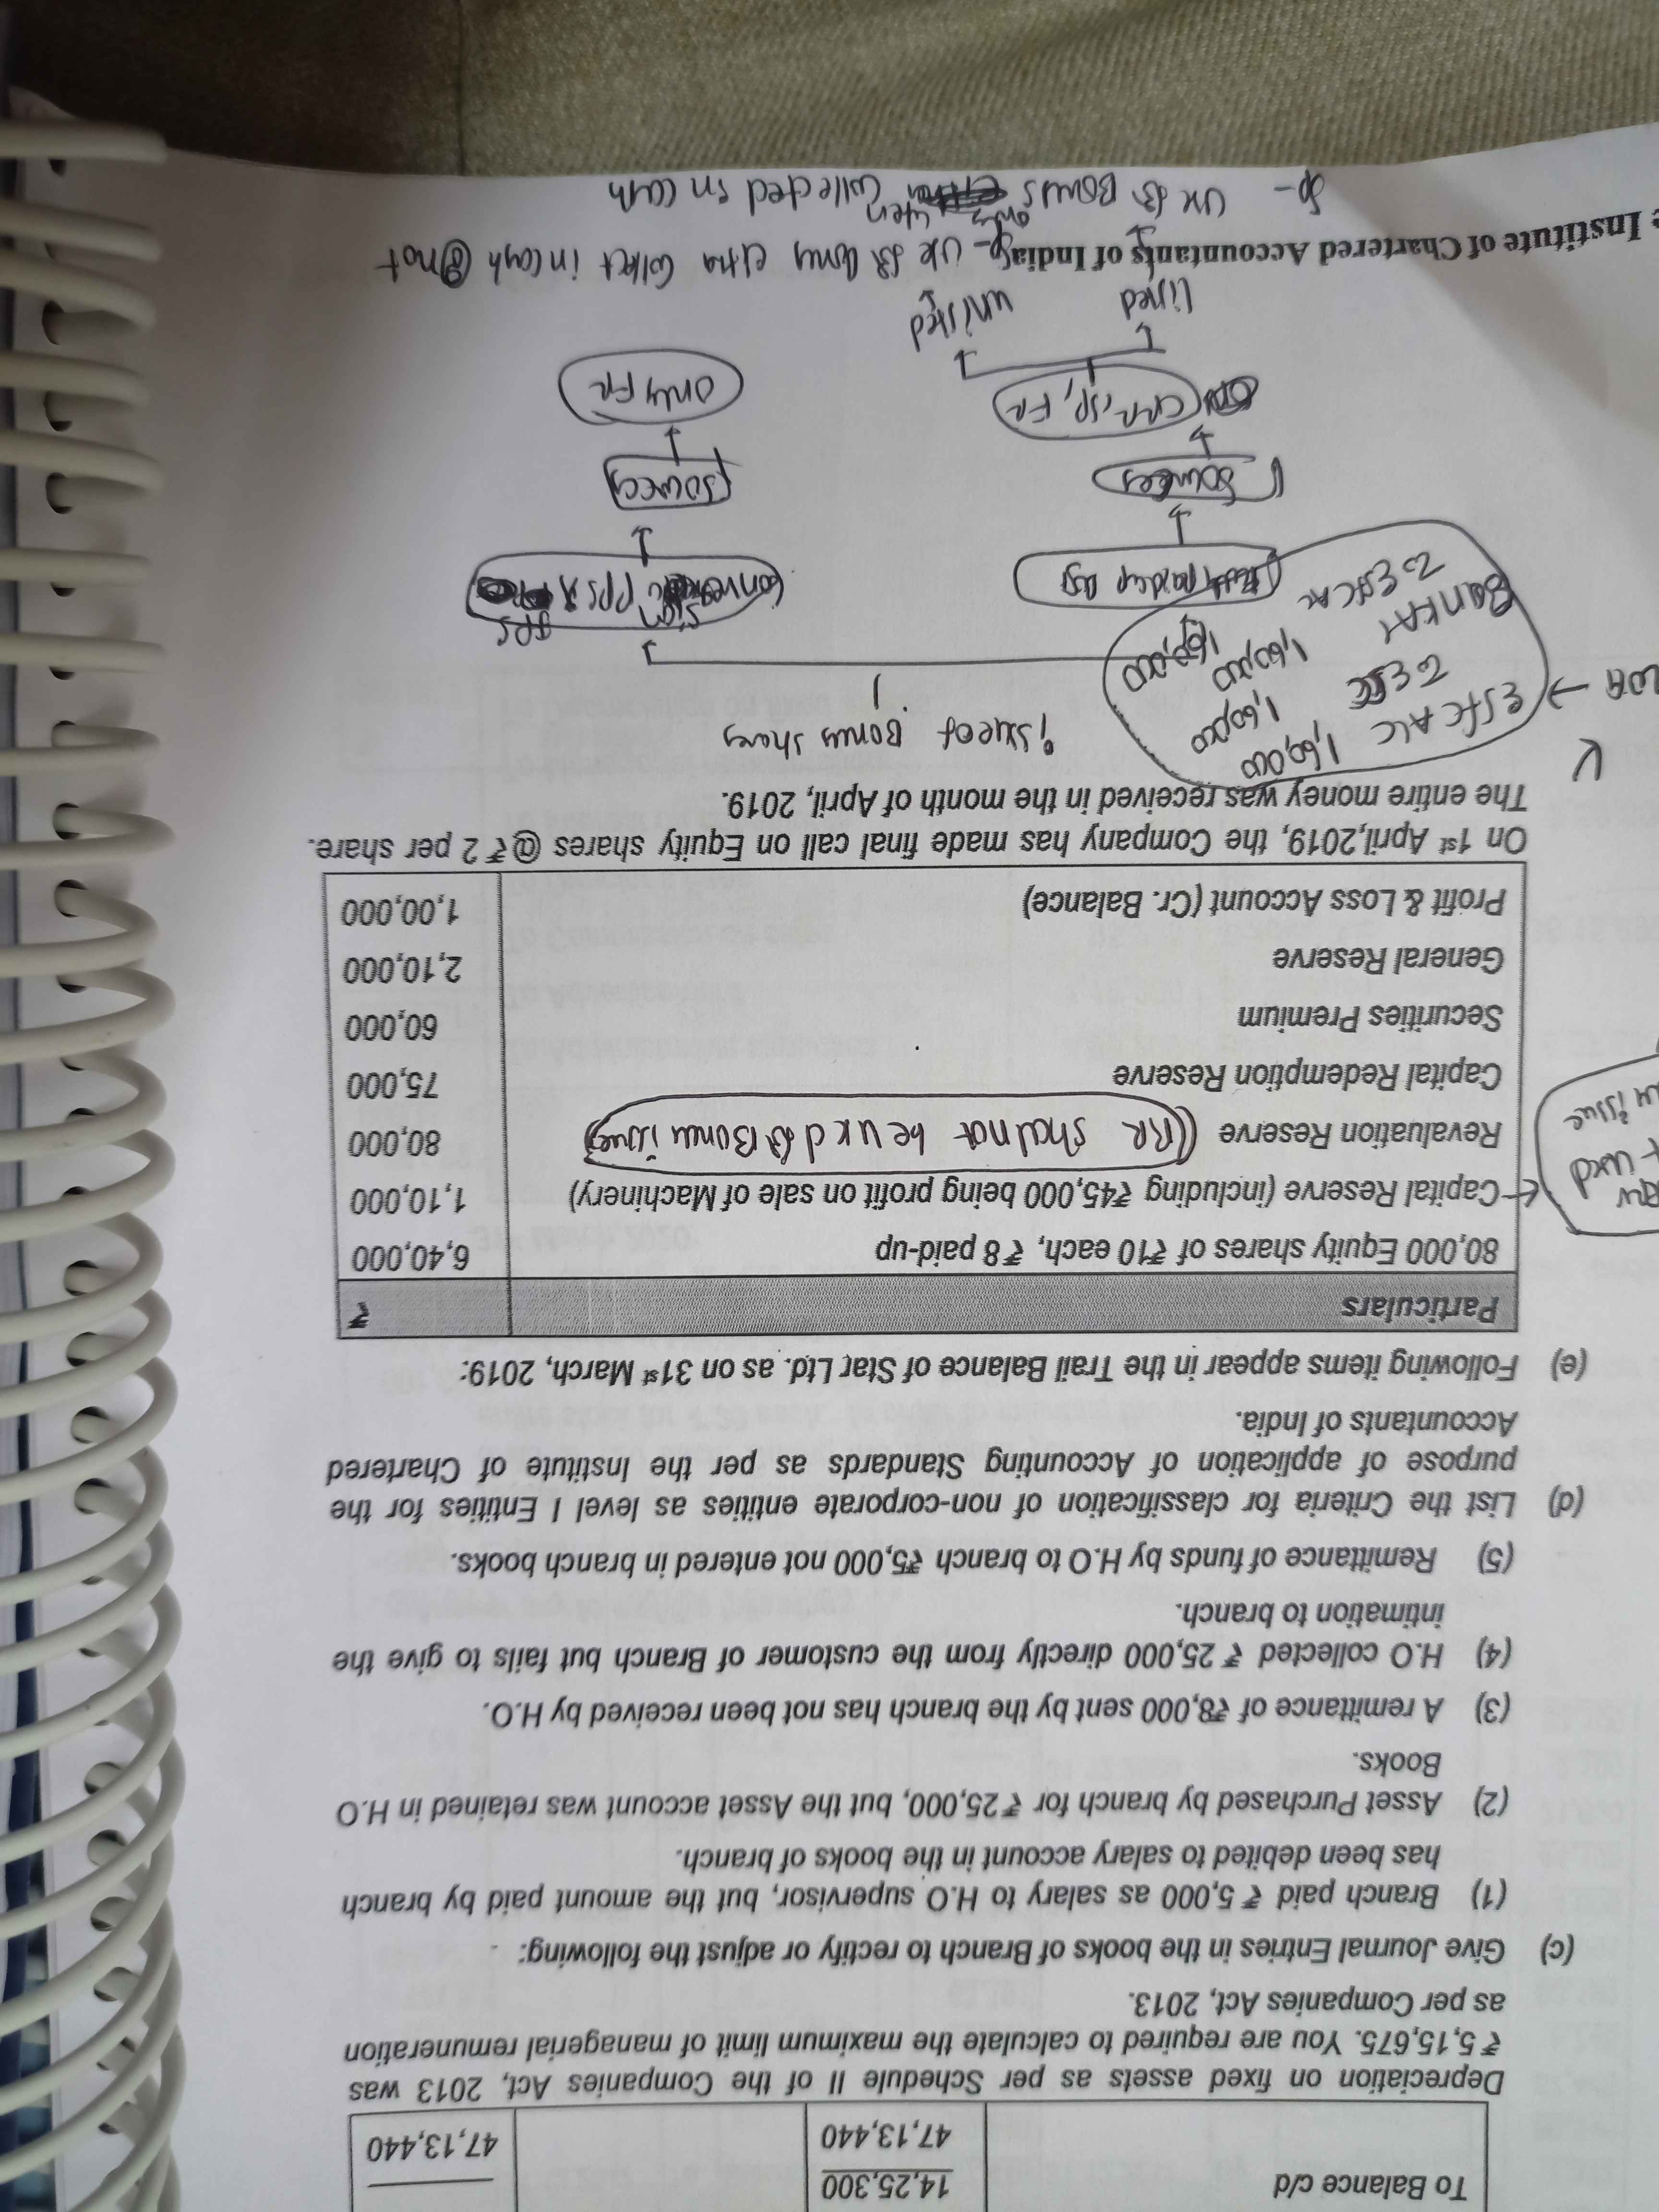 To Balance c/d 14,25,300
47,13,440 47,13,440
Depreciation on fixed assets as per Schedule II of the Companies Act, 2013 was
₹ 5,15,675. You are required to calculate the maximum limit of managerial remuneration
as per Companies Act, 2013.
(c) Give Journal Entries in the books of Branch to rectify or adjust the following:
(1) Branch paid ₹ 5,000 as salary to H.O supervisor, but the amount paid by branch
has been debited to salary account in the books of branch.
(2) Asset Purchased by branch for ₹ 25,000, but the Asset account was retained in H.O
Books.
(3) A remittance of ₹8,000 sent by the branch has not been received by H.O.
(4) H.O collected ₹ 25,000 directly from the customer of Branch but fails to give the
intimation to branch.
(5) Remittance of funds by H.O to branch ₹5,000 not entered in branch books.
(d) List the Criteria for classification of non-corporate entities as level I Entities for the
purpose of application of Accounting Standards as per the Institute of Chartered
Accountants of India.
(e) Following items appear in the Trail Balance of Star Ltd. as on 31st March, 2019:
Particulars ₹
80,000 Equity shares of ₹10 each, ₹ 8 paid-up 6,40,000
Capital Reserve (including ₹45,000 being profit on sale of Machinery) 1,10,000
Revaluation Reserve (RR shall not be used for Bonus issue) 80,000
Capital Redemption Reserve 75,000
Securities Premium 60,000
General Reserve 2,10,000
Profit & Loss Account (Cr. Balance) 1,00,000
On 1st April,2019, the Company has made final call on Equity shares @ ₹ 2 per share.
The entire money was received in the month of April, 2019.
issue of Bonus shares
ESFC A/C 1,60,000
To ESC 1,60,000
Bank A/c 1,60,000
To ESFC A/c 1,60,000
sources sources
CRR, SP, FR only FR
listed unlisted
Institute of Chartered Accountants of India
SP - Use for Bonus only when collected in cash